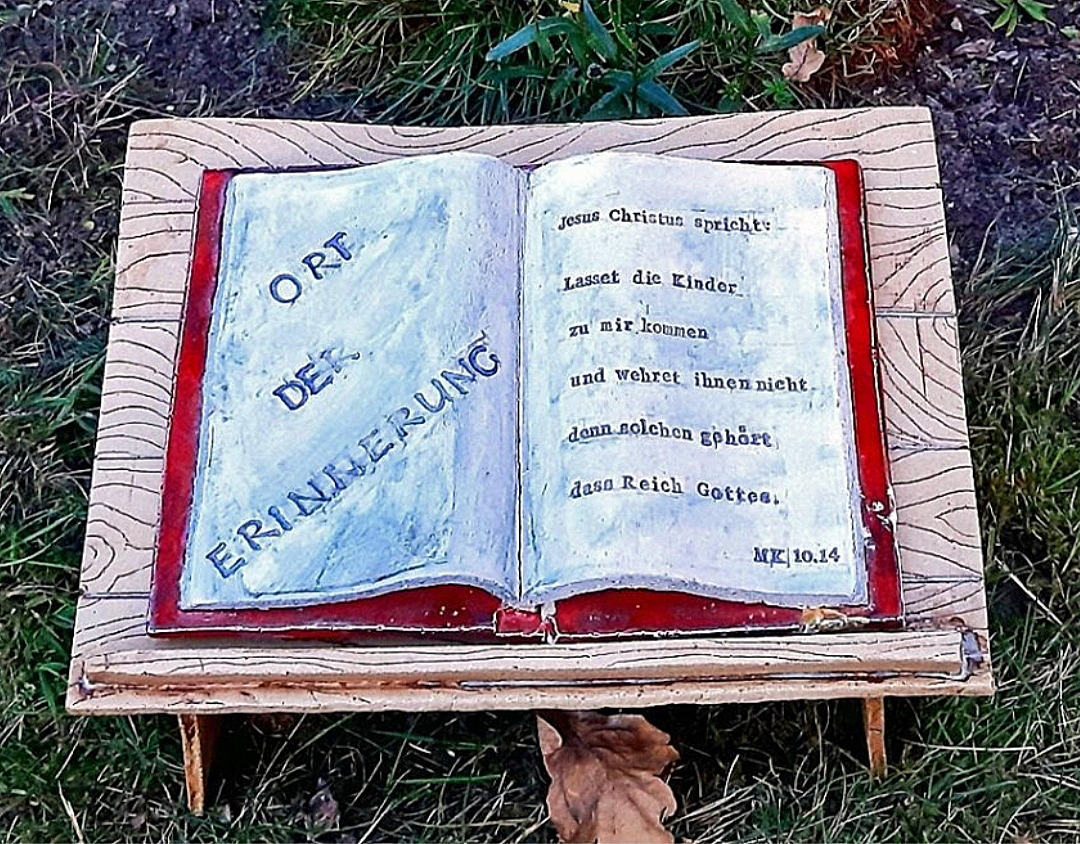 ORT
DER
ERINNERUNG
Jesus Christus spricht:
Lasset die Kinder
zu mir kommen
und wehret ihnen nicht
denn solchen gehört
dass Reich Gottes.
MK 10.14